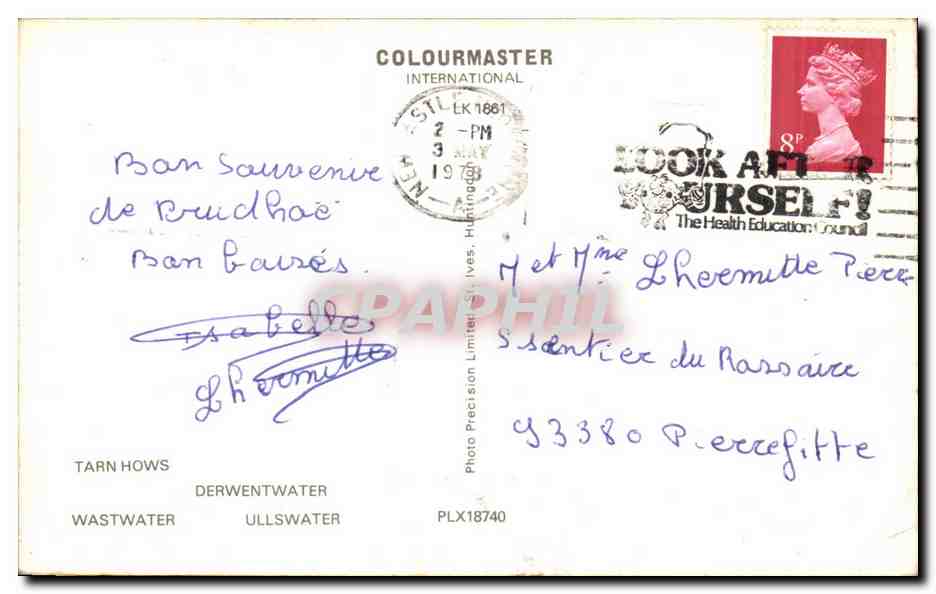 COLOURMASTER
INTERNATIONAL
LK 1861
2 - PM
3 MAY
1978
8P
LOOK AFTER
YOURSELF!
The Health Education Council
Bon Souvenire
de Prudhoë
Bon baisés.
Isabelle
Lhermitte
M et Mme Lhermitte Pierre
5 sentier du
93380 Pierrefitte
CPAPHIL
Photo Precision Limited, St. Ives, Huntingdon
TARN HOWS
DERWENTWATER
WASTWATER ULLSWATER
PLX18740